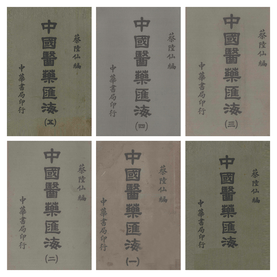 蔡陸仙編
中國醫藥匯海
(五)
中華書局印行
蔡陸仙編
中國醫藥匯海
(四)
中華書局印行
蔡陸仙編
中國醫藥匯海
(三)
中華書局印行
蔡陸仙編
中國醫藥匯海
(二)
中華書局印行
蔡陸仙編
中國醫藥匯海
(一)
中華書局印行
蔡陸仙編
中國醫藥匯海
中華書局印行